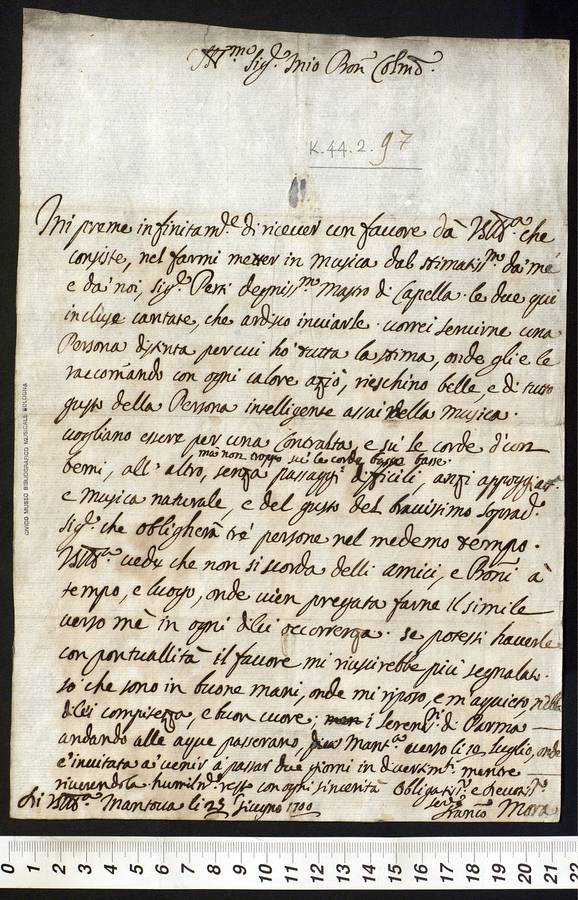 Ill.mo Sig.r Mio Pron Colmo.
K.44.2.97
Mi preme infinitam.te di ricever un favore dà VSIll.a che
consiste, nel farmi metter in musica dal stimatiss.mo da mè
e da noi, Sig.r Perti degniss.mo Mastro di Capella le due qui
incluse cantate, che ardisco inviarle. vorrei servirne una
Persona distinta per cui hò tutta la stima, onde glie le
raccomando con ogni calore acciò, rieschino belle, e di tutto
gusto della Persona intelligente assai della musica.
vogliano essere per una Contralta, e sù le corde d'un
mà non troppo sù le corde basse basse.
temi, all'altro, senza passaggi difficili, anzi appoggiat
e musica naturale, e del gusto del bravissimo soprad.o
Sig.r che obligherà trè persone nel medemo tempo.
VSIll.a vede che non si scorda delli amici, e Proni à
tempo, e luogo, onde vien pregata farne il simile
verso mè in ogni di lei occorrenza. se potessi haverle
con pontuallità il favore mi riuscirebbe più segnalato.
sò che sono in buone mani, onde mi riposo, e m'aquieto
di lei compitezza, e buon cuore; i Seren.mi di Parma
andando alle aque passerano Mant.a verso li 10 luglio, onde
è invitata a venir à passar due giorni in divertim.ti mentre
riverendola humilm.te resto con ogni sincerità Obligatiss.o e devotiss.o
Di VSIll.a Mantova li 23 Giugno 1700 Ser.e
Franc.o Mora
CIVICO MUSEO BIBLIOGRAFICO MUSICALE BOLOGNA
0 1 2 3 4 5 6 7 8 9 10 11 12 13 14 15 16 17 18 19 20 21 22